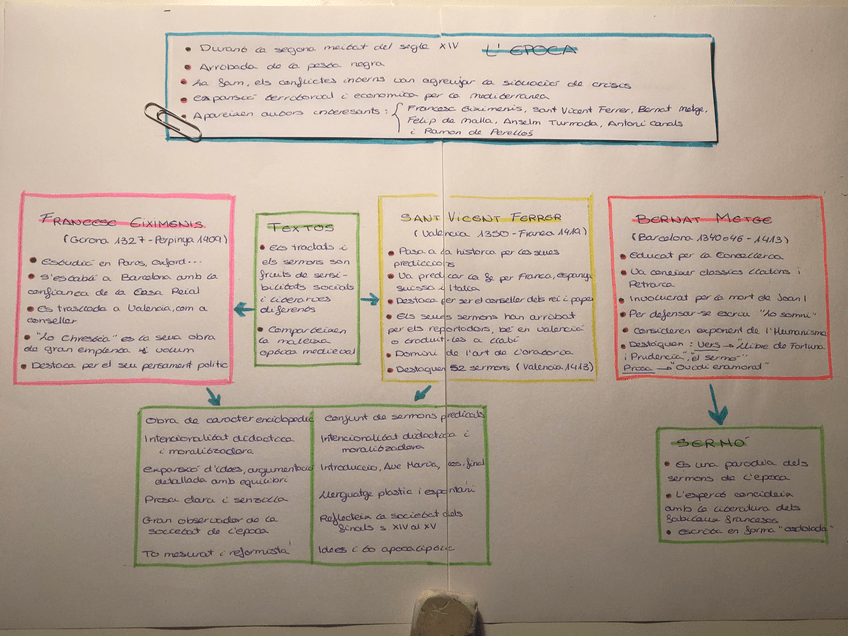 L'ÈPOCA
• Durant la segona meitat del segle XIV
• Arribada de la pesta negra
• La fam, els conflictes interns van agreujar la situació de crisis
• expansió territorial i econòmica per la mediterranea
• Apareixen autors interessants: { Francesc Eiximenis, Sant Vicent Ferrer, Bernat Metge,
Felip de Malla, Anselm Turmeda, Antoni Canals
i Ramon de Perellós
FRANCESC EIXIMENIS
(Girona 1327 - Perpinya 1409)
• Estudià en París, Oxford...
• S'establí a Barcelona amb la
confiança de la Casa Reial
• Es trasllada a Valencia, com a
conseller
• "Lo Chrestià" es la seua obra
de gran empenta i volum
• Destaca per el seu pensament politic
TEXTOS
• Els tractats i
els sermons son
fruits de sensi-
bilitats socials
i literaries
diferents
• Comparteixen
la mateixa
optica medieval
SANT VICENT FERRER
(Valencia 1350 - França 1419)
• Passa a la historia per les seues
prediccions
• Va predicar la fe per França, espanya
suissa i Italia
• Destaca per ser el conseller dels rei i papes
• Els seues sermons han arribat
per els reportadors, bé en valencià
o traduït-les a llatí
• Domini de l'art de l'oratoria
• Destaquen 52 sermons (Valencia, 1413)
BERNAT METGE
(Barcelona 1340 o 46 - 1413)
• Educat per la Cancelleria
• Va coneixer classics llatins i
Petrarca
• Involucrat per la mort de Joan I
• Per defensar-se escriu "Lo somni"
• Consideren exponent de l'Humanisme
• Destaquen: Vers → "Llibre de Fortuna
i Prudencia" "el sermó"
Prosa → "Ovidi enamorat"
Obra de caracter enciclopedic
Intencionalitat didactica
i moralitzadora
Expansió d'idees, argumentació
detallada amb equilibri
Prosa clara i senzilla
Gran observador de la
societat de l'epoca
To mesurat i reformista
Conjunt de sermons predicats
Intencionalitat didactica i
moralitzadora
Introducció, Ave Maria, cos, final
Llenguatge plastic i espontani
Reflecteix la societat dels
finals s XIV al XV
Idees i to apocaliptic
SERMÓ
• Es una parodia dels
sermons de l'època
• L'esperit coincideix
amb la literatura dels
fabliaux francesos
• escrita en forma "codolada"